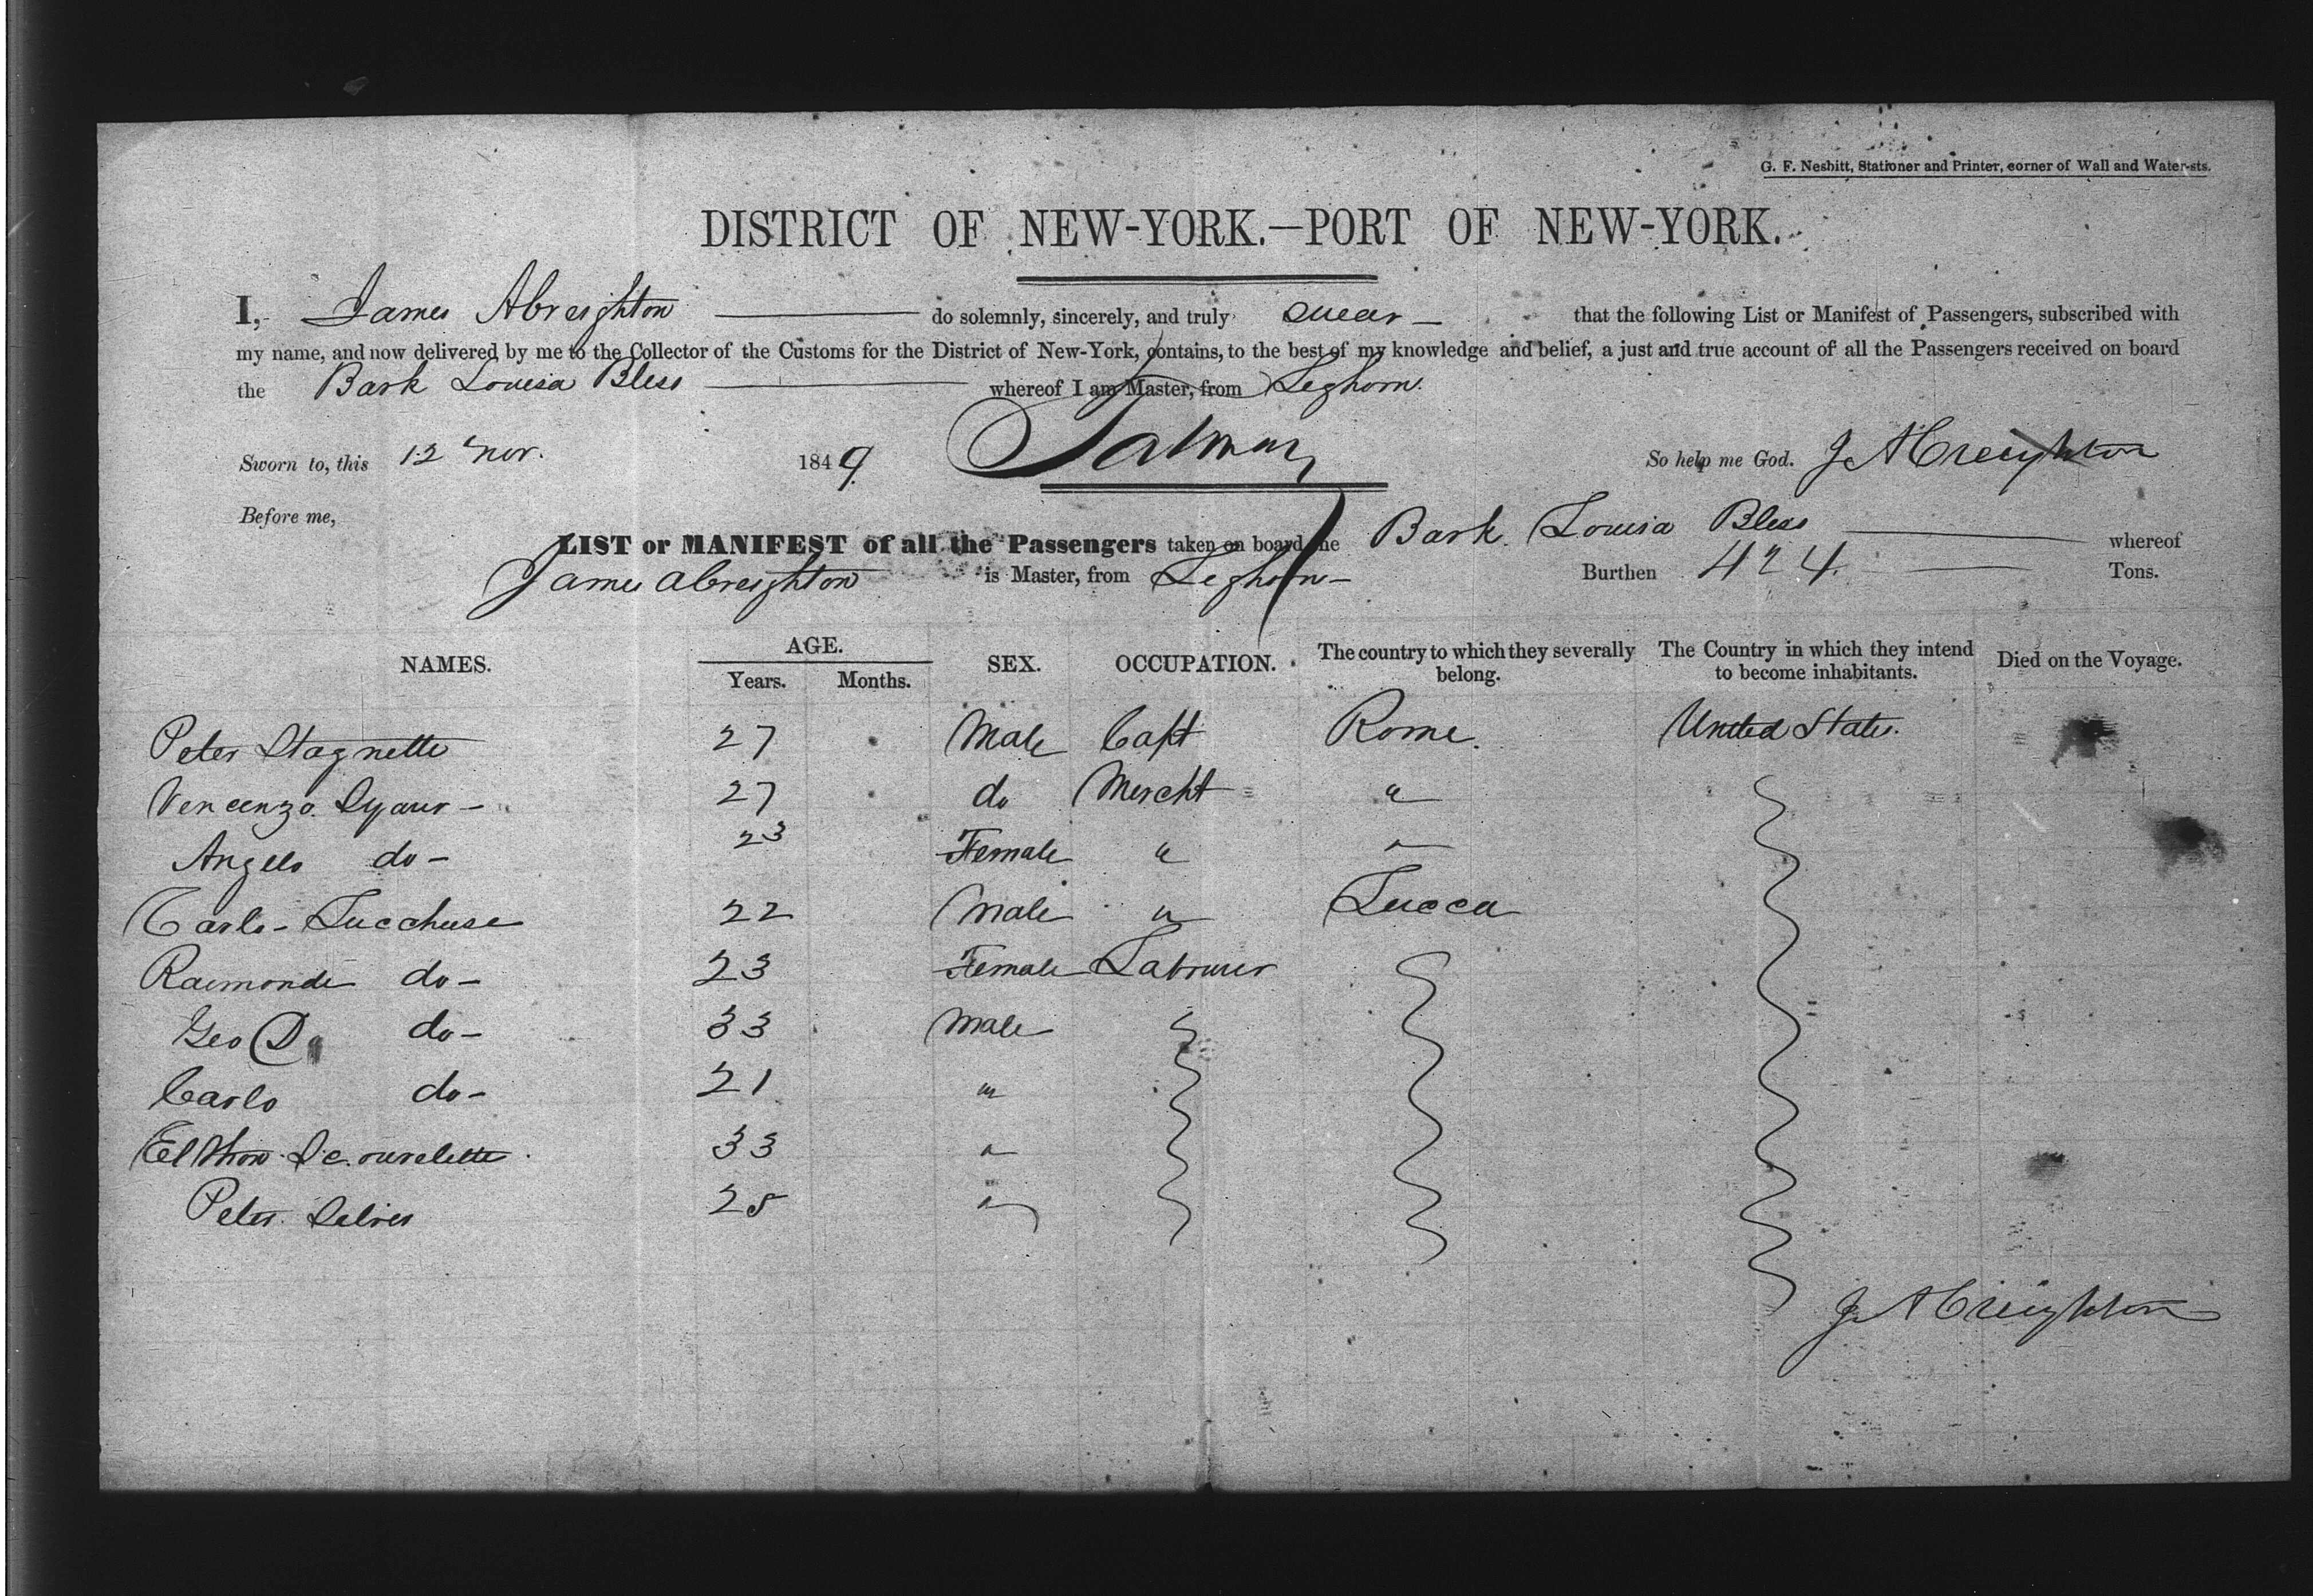 G. F. Nesbitt, Stationer and Printer, corner of Wall and Water-sts.
DISTRICT OF NEW-YORK.—PORT OF NEW-YORK.
I, James Abreighton do solemnly, sincerely, and truly swear that the following List or Manifest of Passengers, subscribed with
my name, and now delivered by me to the Collector of the Customs for the District of New-York, contains, to the best of my knowledge and belief, a just and true account of all the Passengers received on board
the Bark Louisa Bless whereof I am Master, from Leghorn.
Sworn to, this 12 Nov. 1849. So help me God. J A Creighton
Before me,
LIST or MANIFEST of all the Passengers taken on board the Bark Louisa Bless whereof
James Abreighton is Master, from Leghorn Burthen 424. Tons.
NAMES. AGE. SEX. OCCUPATION. The country to which they severally belong. The Country in which they intend to become inhabitants. Died on the Voyage.
Years. Months.
Peter Stagnetto 27 Male Capt Rome. United States.
Vencenzo 27 do Mercht "
Angelo do 23 Female " "
Carlo Lucchese 22 Male " Lucca
Raemonde do 23 Female Labourer
Geo D do 33 Male
Carlo do 21 "
33 "
Peter 25 "
J A Creighton